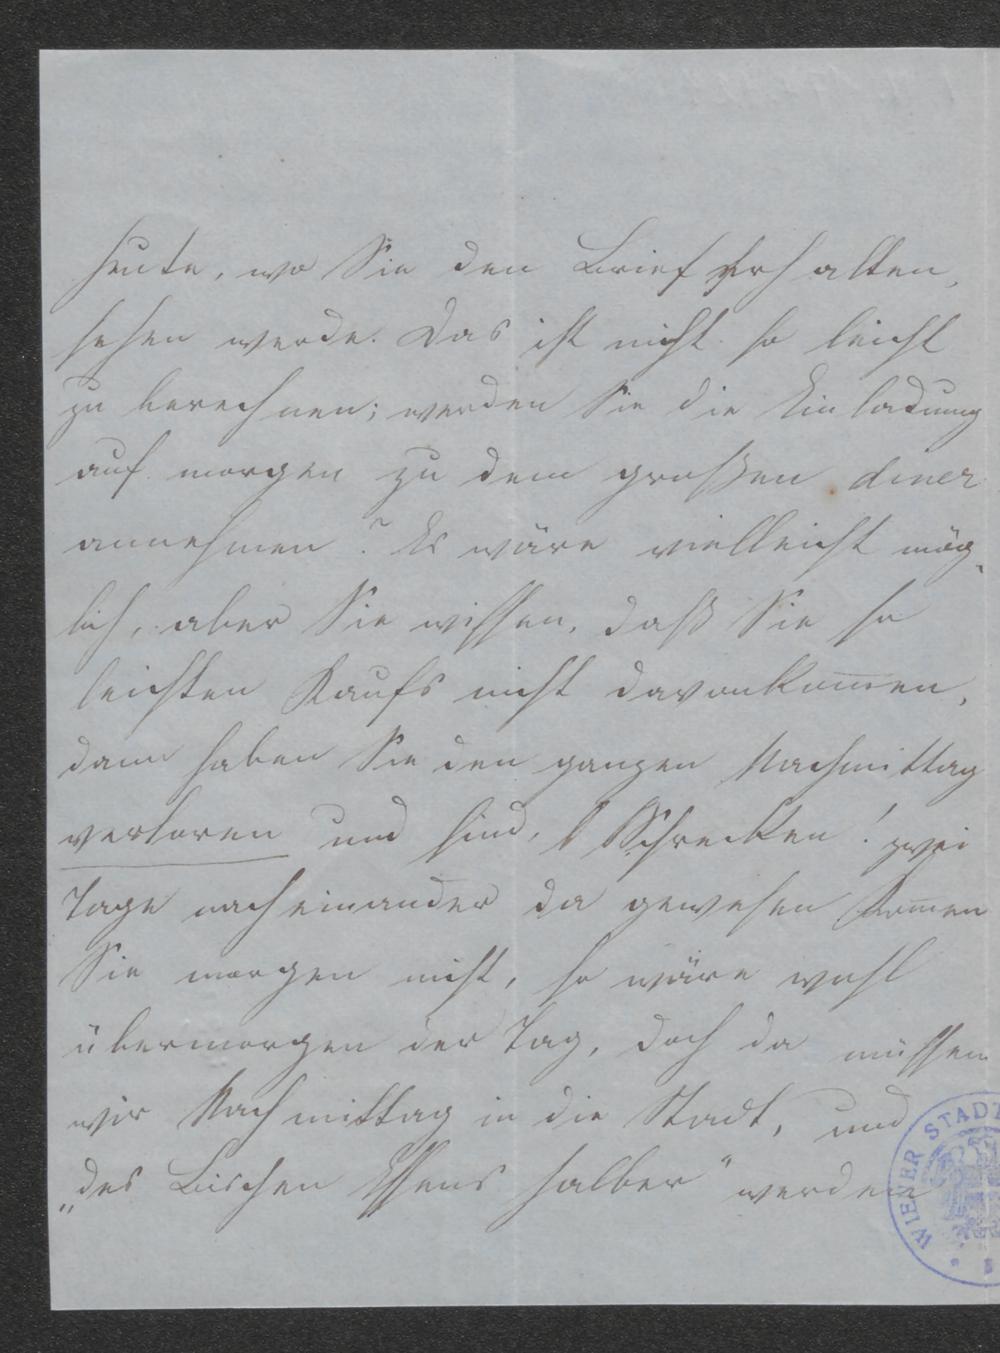 heute, wo Sie den Brief erhalten,
sehen werde. Das ist nicht so leicht
zu berechnen; werden Sie die Einladung
auf morgen zu dem großen diner
annehmen? Es wäre vielleicht mög-
lich, aber Sie wissen, daß Sie so
leichten Kaufs nicht davonkom̅en,
dann haben Sie den ganzen Nachmittag
verloren und sind, O Schrecken! zwei
Tage nach einander da gewesen Kom̅en
Sie morgen nicht, so wäre wohl
übermorgen der Tag, doch da müssen
wir Nachmittag in die Stadt, und
„des Bischen Essens halber“ werden
WIENER STADT